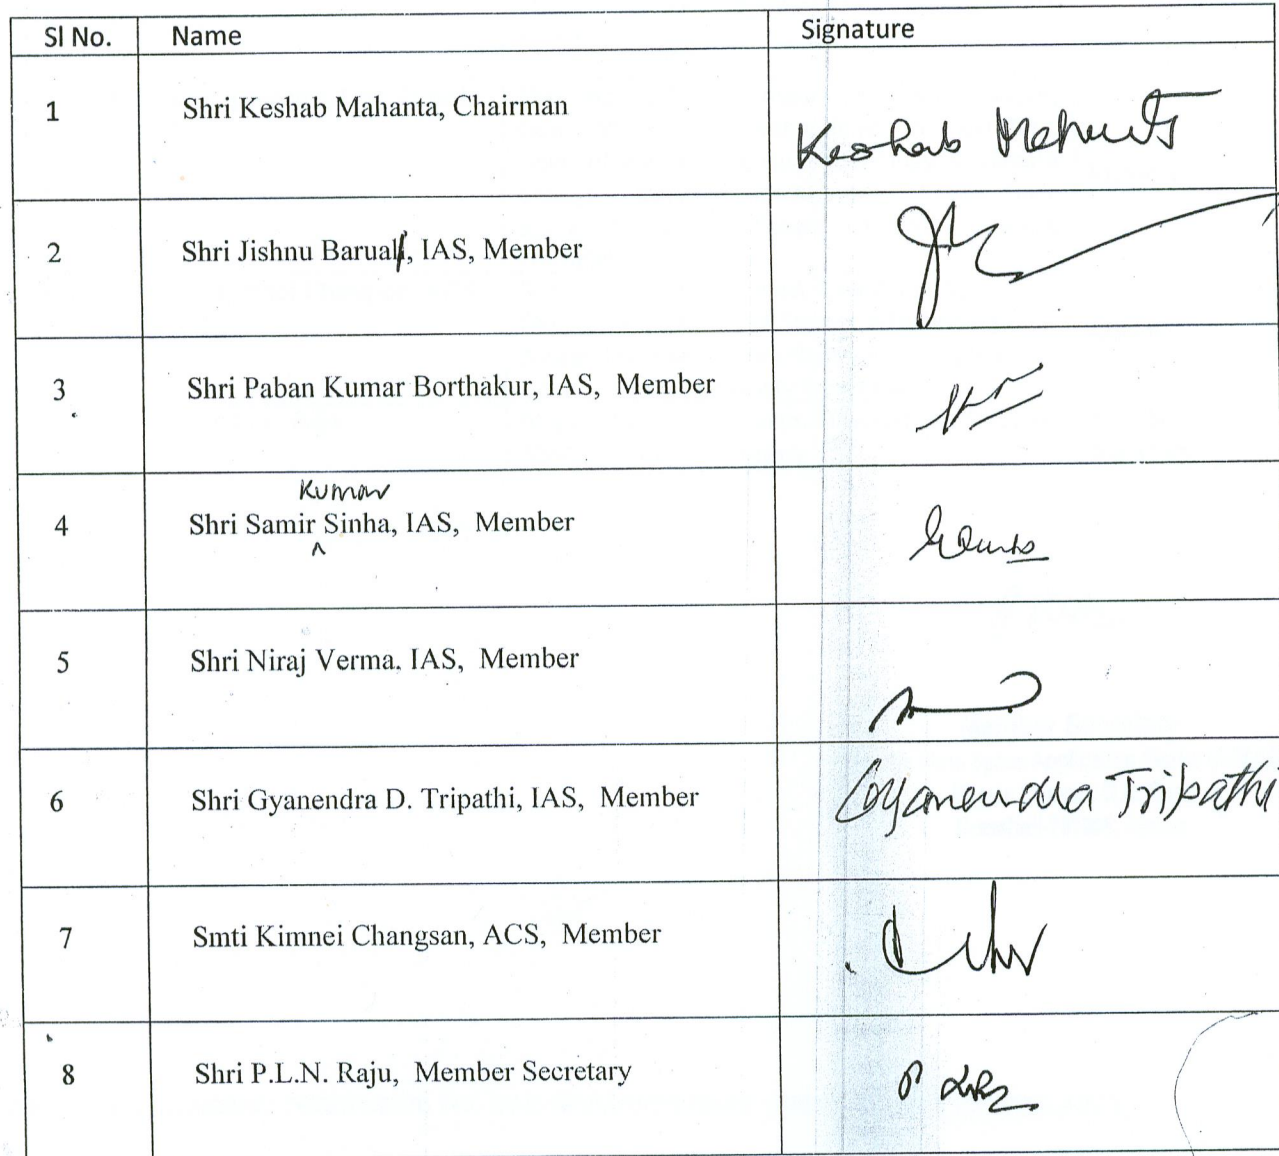 Sl No. Name Signature
1 Shri Keshab Mahanta, Chairman Keshab Mahanta
2 Shri Jishnu Barua, IAS, Member
3 Shri Paban Kumar Borthakur, IAS, Member
Kumar
4 Shri Samir ^ Sinha, IAS, Member
5 Shri Niraj Verma, IAS, Member
6 Shri Gyanendra D. Tripathi, IAS, Member Gyanendra Tripathi
7 Smti Kimnei Changsan, ACS, Member
8 Shri P.L.N. Raju, Member Secretary